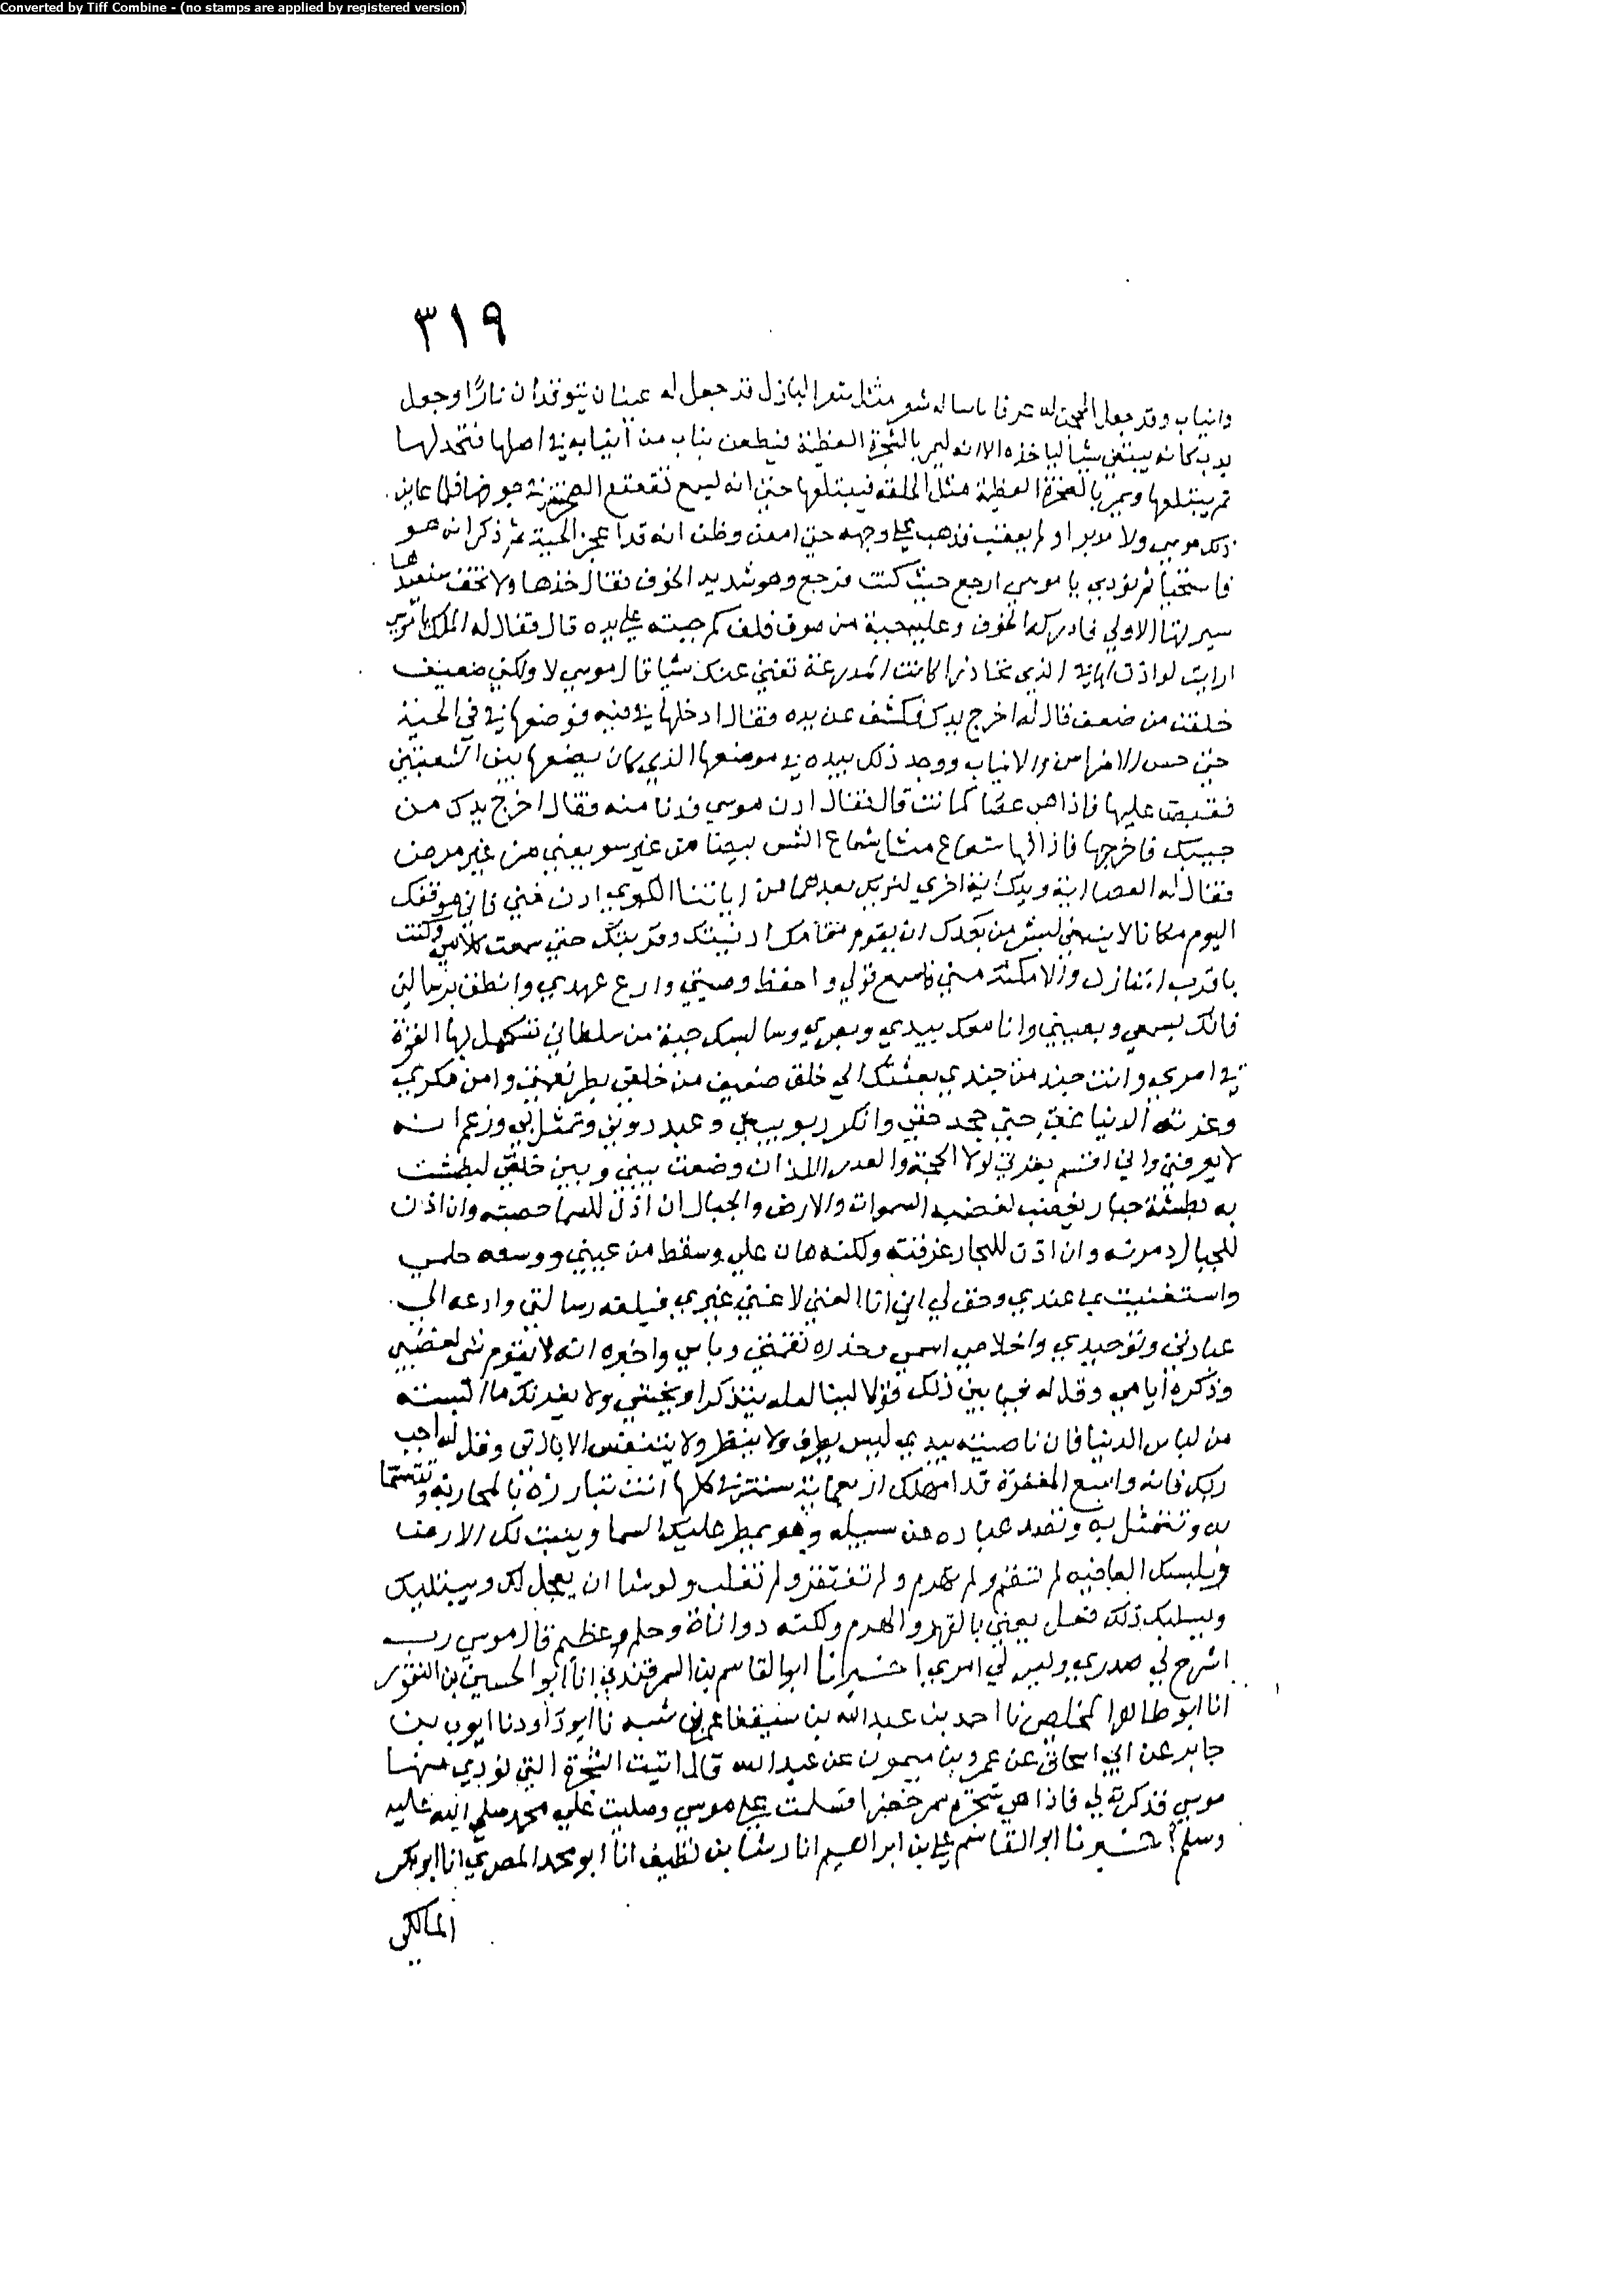 Converted by Tiff Combine - (no stamps are applied by registered version)
٣١٩
وانياب وقد جعل المحجن له عرفا شعر مثل شعر البازل قد جعل له عينان يتوقدان نارًا وجعل
يدب كانه يبتغي شيا لياخذه الا انه ليمر بالشجرة العظيمة فيطعن بناب من انيابه في اصلها فتخد لها
ثم يبتلعها ويمر بالصخرة العظيمة مثل الخلفة فيبتلعها حتى انه ليسمع تقعقع الصخرة في جوفها فلما عاين
ذلك موسى ولا مدبرا ولم يعقب فذهب على وجهه حتى امعن وظن انه قد اعجز الحية ثم ذكر انه هو
فاستحيا ثم نودي يا موسى ارجع حيث كنت فرجع وهو شديد الخوف فقال خذها ولا تخف سنعيدها
سيرتها الاولى فادركه الخوف وعليه جبة من صوف فلف كم جبته على يده قال فقال له الملك يا موسى
ارايت لو اذن الله في الذي تحاذر اكانت المدرعة تغني عنك شيا قال موسى لا ولكني ضعيف
خلقت من ضعف قال له اخرج يدك فكشف عن يده فقال ادخلها في فيه فوضعها في في الحية
حتى حس الاضراس والانياب ووجد ذلك بيده في موضعها الذي كان يضعها بين الشعبتين
فقبض عليها فاذا هي عصا كما كانت قال فقال ادن موسى فدنا منه فقال اخرج يدك من
جيبك فاخرجها فاذا لها شعاع مثل شعاع الشمس بيضا من غير سو يعني من غير مرض
فقال له العصا اية ويدك اية اخرى لنريك بعدهما من اياتنا الكبرى ادن مني فاني موقفك
اليوم مكانا لا ينبغي لبشر من بعدك ان يقوم مقامك ادنيتك وقربتك حتى سمعت كلامي وكنت
باقرب الامكنة مني فاسمع قولي واحفظ وصيتي وارع عهدي وانطلق برسالتي
فانك بسمعي وبعيني وانا معك بيدي وبصري وسالبسك جبة من سلطاني تستكمل بها القوة
في امري وانت جند من جندي بعثتك الى خلق ضعيف من خلقي بطر نعمتي وامن مكري
وغرته الدنيا عني حتى جحد حقي وانكر ربوبيتي وعبد دوني وتمثل بي وزعم انه
لا يعرفني واني اقسم بعزتي لولا الحجة والعدر اللذان وضعت بيني وبين خلقي لبطشت
به بطشة جبار يغضب لغضبه السموات والارض والجبال ان اذن للسما حصبته وان اذن
للجبال دمرته وان اذن للبحار غرقته ولكنه هان علي وسقط من عيني ووسعه حلمي
واستغنيت بما عندي وحق لي اني انا الغني لا غني غيري فبلغه رسالتي وادعه الى
عبادتي وتوحيدي واخلاص اسمي وحذره نقمتي وباسي واخبره انه لا يقوم شي لغضبي
وذكره ايامي وقل له فيما بين ذلك قولا لينا لعله يتذكر او يخشى ولا يغرنك ما البسته
من لباس الدنيا فان ناصيته بيدي ليس يطرف ولا ينطق ولا يتنفس الا باذني وقل له اجب
ربك فانه واسع المغفرة قد امهلك اربعماية سنة في كلها انت تبارزه بالمحاربة وتتسما
به وتتمثل به وتصد عباده عن سبيله وهو يمطر عليك السما وينبت لك الارض
ويلبسك العافيه لم تسقم ولم تهرم ولم تفتقر ولم تغلب ولو شا ان يعجل لك ويبتليك
ويسلبك ذلك فعل يعني بالقهر والهرم ولكنه ذو اناة وحلم عظيم قال موسى رب
اشرح لي صدري ويسر لي امري اخبرنا ابو القاسم بن السمرقندي انا ابو الحسين بن النقور
انا ابو طاهر المخلص نا احمد بن عبد الله بن سيف نا عمر بن شبه نا ابو داود نا ايوب بن
جابر عن ابي اسحاق عن عمرو بن ميمون عن عبد الله قال اتيت الشجرة التي نودي منها
موسى فذكرت لي فاذا هي شجرة سمر خضرا فسلمت على موسى وصليت على محمد صلى الله عليه
وسلم اخبرنا ابو القاسم علي بن ابراهيم انا رشا بن نظيف انا ابو محمد المصري انا ابو بكر
المالكي